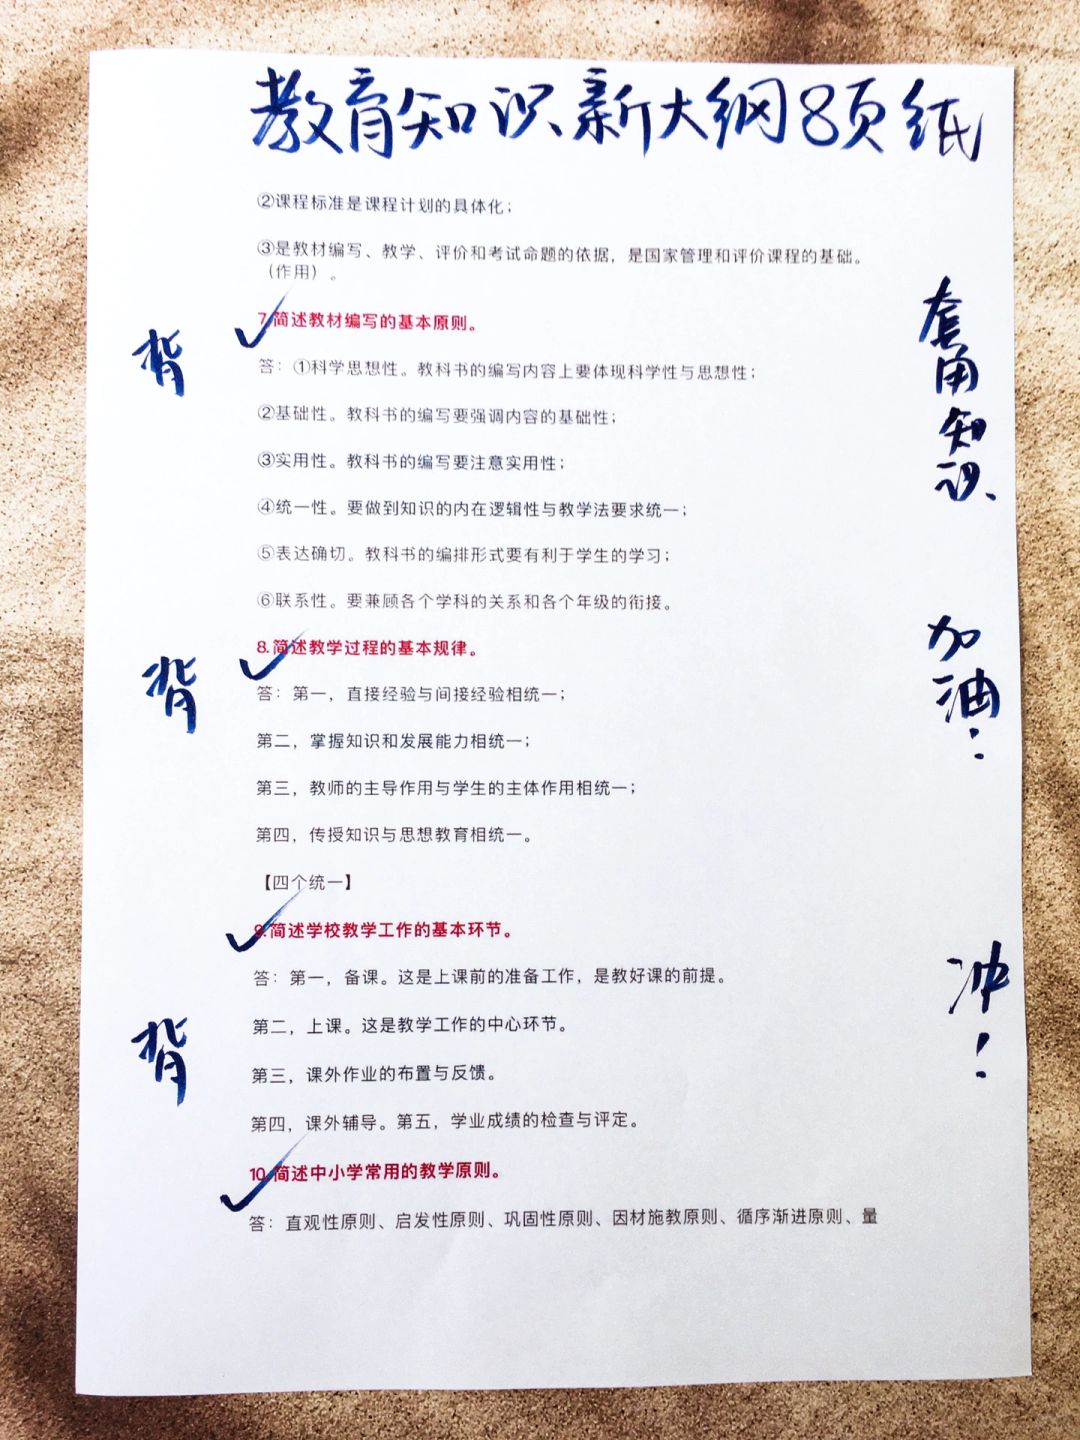 教育知识新大纲8页纸
②课程标准是课程计划的具体化；
③是教材编写、教学、评价和考试命题的依据，是国家管理和评价课程的基础。
（作用）。
7.简述教材编写的基本原则。
背
答：①科学思想性。教科书的编写内容上要体现科学性与思想性；
②基础性。教科书的编写要强调内容的基础性；
③实用性。教科书的编写要注意实用性；
④统一性。要做到知识的内在逻辑性与教学法要求统一；
⑤表达确切。教科书的编排形式要有利于学生的学习；
⑥联系性。要兼顾各个学科的关系和各个年级的衔接。
套用知识
8.简述教学过程的基本规律。
背
答：第一，直接经验与间接经验相统一；
第二，掌握知识和发展能力相统一；
第三，教师的主导作用与学生的主体作用相统一；
第四，传授知识与思想教育相统一。
【四个统一】
加油！
9.简述学校教学工作的基本环节。
答：第一，备课。这是上课前的准备工作，是教好课的前提。
第二，上课。这是教学工作的中心环节。
背
第三，课外作业的布置与反馈。
第四，课外辅导。第五，学业成绩的检查与评定。
冲！
10.简述中小学常用的教学原则。
答：直观性原则、启发性原则、巩固性原则、因材施教原则、循序渐进原则、量